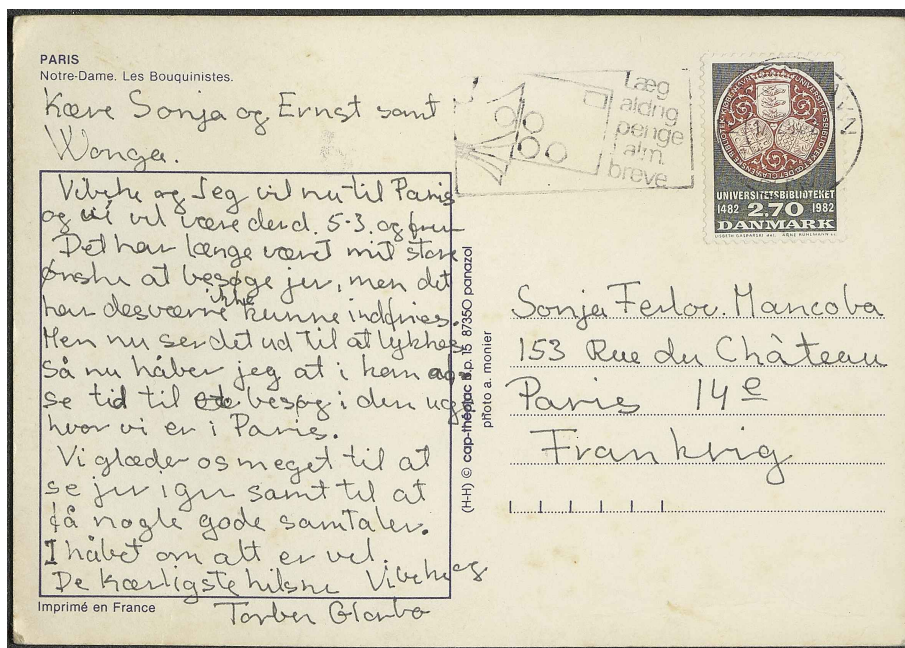 PARIS
Notre-Dame. Les Bouquinistes.
Kære Sonja og Ernst samt
Wonga.
Vibeke og Jeg vil nu til Paris
og vi vil være der d. 5.3. og frem
Det har længe været mit store
ønske at besøge jer, men det
har desværre ikke kunne indfries.
Men nu ser det ud til at lykkes
Så nu håber jeg at i kan
se tid til besøg i den uge
hvor vi er i Paris.
Vi glæder os meget til at
se jer igen samt til at
få nogle gode samtaler.
I håbet om alt er vel.
De Kærligste hilsne Vibeke og
Torben Glarbo
Imprimé en France
(H-H) © cap-théojac b.p. 15 87350 panazol
photo a. monier
Læg
aldrig
penge
i alm.
breve
UNIVERSITETSBIBLIOTEKET
1482 2.70 1982
DANMARK
Sonja Ferlov. Mancoba
153 Rue du Château
Paris 14e
Frankrig